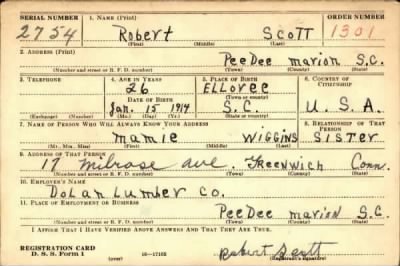 SERIAL NUMBER 1. NAME (Print) ORDER NUMBER
2754 Robert Scott 1301
(First) (Middle) (Last)
2. ADDRESS (Print)
PeeDee marion S.C.
(Number and street or R. F. D. number) (Town) (County) (State)
3. TELEPHONE 4. AGE IN YEARS 5. PLACE OF BIRTH 6. COUNTRY OF CITIZENSHIP
26 ELLoree
DATE OF BIRTH (Town or county)
Jan. 15 1914 S.C. U.S.A.
(Exchange) (Number) (Mo.) (Day) (Yr.) (State or country)
7. NAME OF PERSON WHO WILL ALWAYS KNOW YOUR ADDRESS 8. RELATIONSHIP OF THAT PERSON
mamie WIGGINS SISTER
(Mr., Mrs., Miss) (First) (Middle) (Last)
9. ADDRESS OF THAT PERSON
19 milrose ave. Greenwich Conn.
(Number and street or R. F. D. number) (Town) (County) (State)
10. EMPLOYER'S NAME
DoLan Lumber Co.
11. PLACE OF EMPLOYMENT OR BUSINESS
PeeDee marion S.C.
(Number and street or R. F. D. number) (Town) (County) (State)
I AFFIRM THAT I HAVE VERIFIED ABOVE ANSWERS AND THAT THEY ARE TRUE.
REGISTRATION CARD Robert Scott
D. S. S. Form 1 (over) 16—17105 (Registrant's signature)